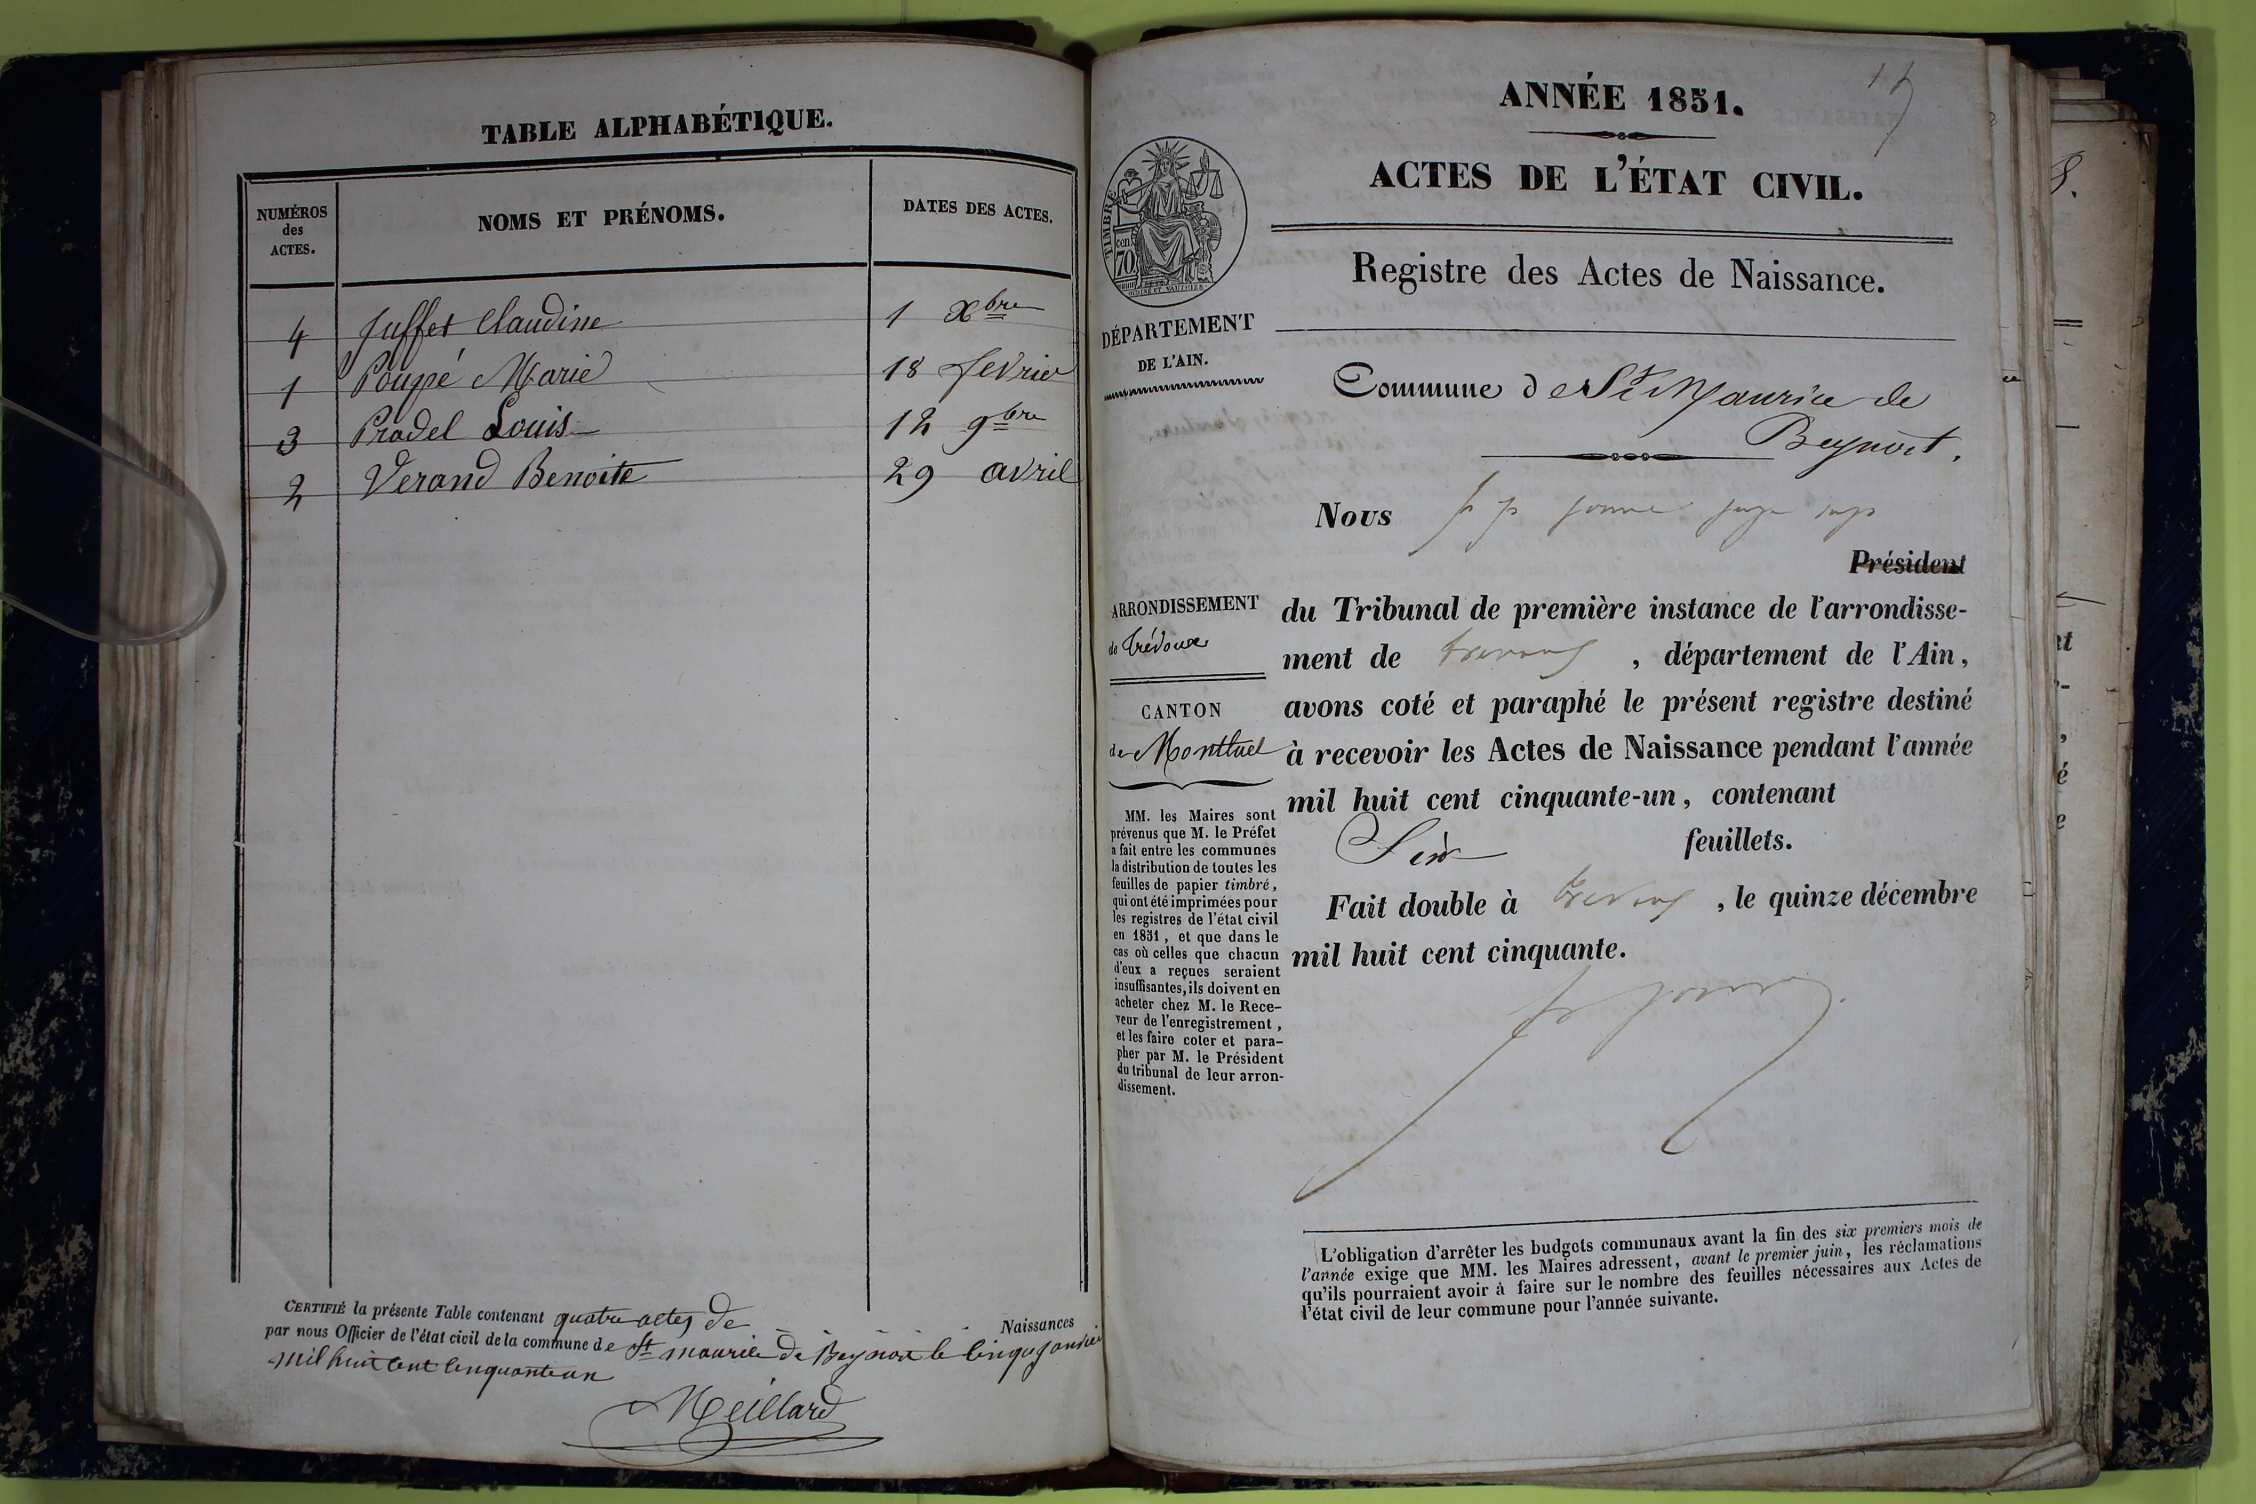 TABLE ALPHABÉTIQUE.
NUMÉROS
des
ACTES.
NOMS ET PRÉNOMS.
DATES DES ACTES.
4 Juffet Claudine 1 Xbre
1 Poupé Marie 18 fevrier
3 Pradel Louis 12 9bre
2 Verand Benoite 29 avril
CERTIFIÉ la présente Table contenant quatre actes de Naissances
par nous Officier de l'état civil de la commune de St maurice de Beynost le cinq janvier
mil huit cent cinquante un
Meillard
ANNÉE 1851.
ACTES DE L'ÉTAT CIVIL.
Registre des Actes de Naissance.
TIMBRE
cen.
70
DÉPARTEMENT
DE L'AIN.
Commune de St Maurice de
Beynost.
Nous
Président
ARRONDISSEMENT
de Trévoux
CANTON
de Montluel
du Tribunal de première instance de l'arrondisse-
ment de trevoux, département de l'Ain,
avons coté et paraphé le présent registre destiné
à recevoir les Actes de Naissance pendant l'année
mil huit cent cinquante-un, contenant
Six feuillets.
Fait double à trevoux, le quinze décembre
mil huit cent cinquante.
MM. les Maires sont
prévenus que M. le Préfet
a fait entre les communes
la distribution de toutes les
feuilles de papier timbré,
qui ont été imprimées pour
les registres de l'état civil
en 1851, et que dans le
cas où celles que chacun
d'eux a reçues seraient
insuffisantes, ils doivent en
acheter chez M. le Rece-
veur de l'enregistrement,
et les faire coter et para-
pher par M. le Président
du tribunal de leur arron-
dissement.
L'obligation d'arrêter les budgets communaux avant la fin des six premiers mois de
l'année exige que MM. les Maires adressent, avant le premier juin, les réclamations
qu'ils pourraient avoir à faire sur le nombre des feuilles nécessaires aux Actes de
l'état civil de leur commune pour l'année suivante.